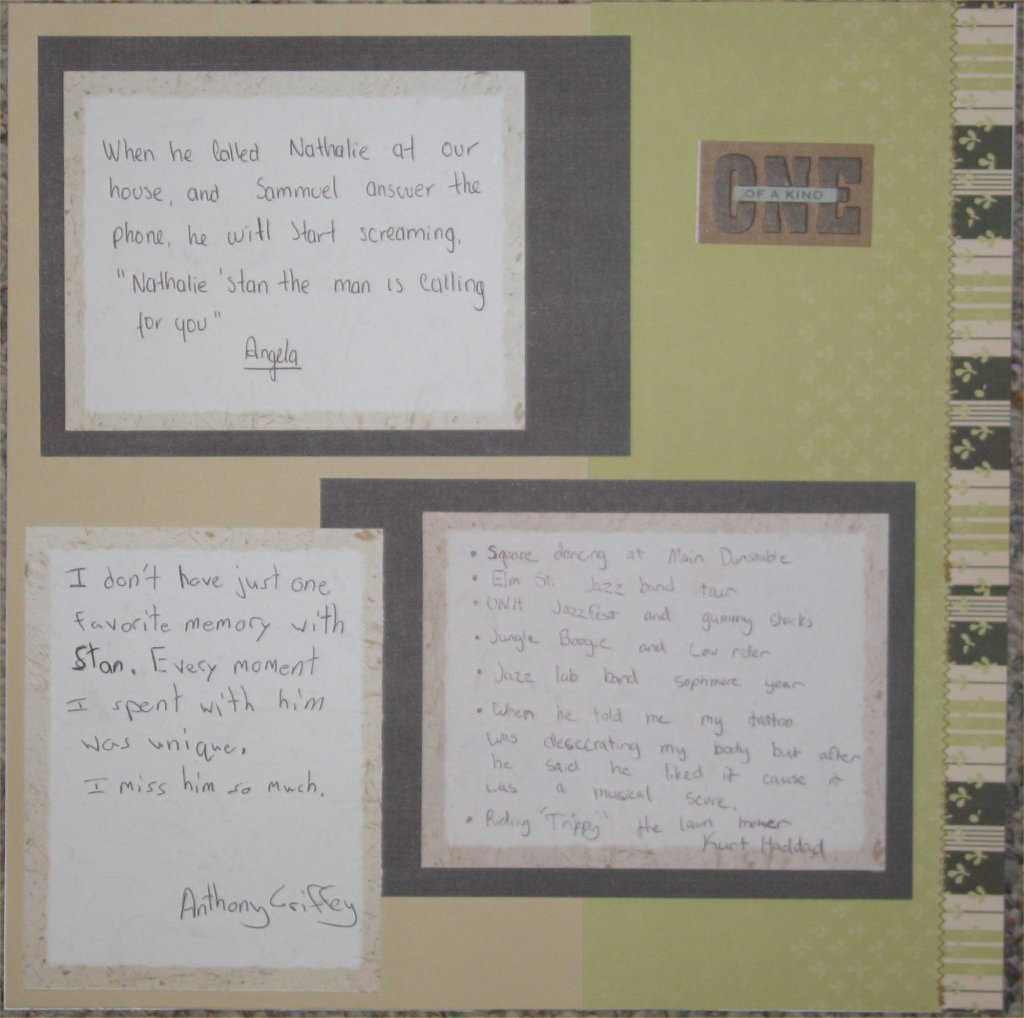 When he called Nathalie at our
house, and Sammuel answer the
phone, he will start screaming,
"Nathalie 'stan the man is calling
for you"
Angela
ONE
OF A KIND
I don't have just one
favorite memory with
Stan. Every moment
I spent with him
was unique.
I miss him so much.
Anthony Griffey
• Square dancing at Main Dunstable
• Elm St. Jazz band tour
• UNH Jazzfest and gummy sharks
• Jungle Boogie and Low rider
• Jazz lab band sophmore year
• When he told me my tattoo
was desecrating my body but after
he said he liked it cause it
was a musical score.
• Riding "Trippy" the lawn mower
Kurt Haddad